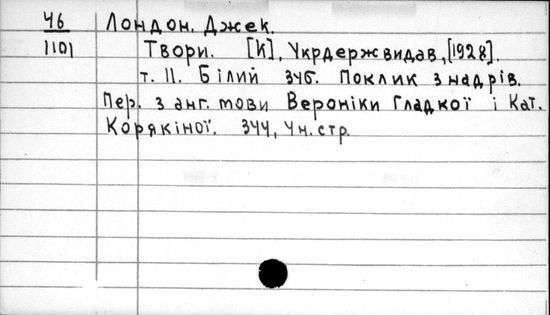 46 Лондон, Джек.
1101 Твори. [К], Укрдержвидав, [1928].
т. II. Білий зуб. Поклик з надрів.
Пер. з анг. мови Вероніки Гладкої і Кат.
Корякіної. 344, 4 н. стр.